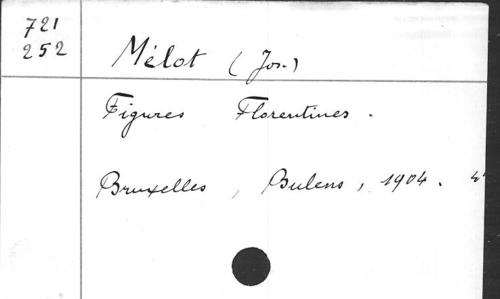 721
252
Mélot (Jos.)
Figures Florentines.
Bruxelles, Bulens, 1904.